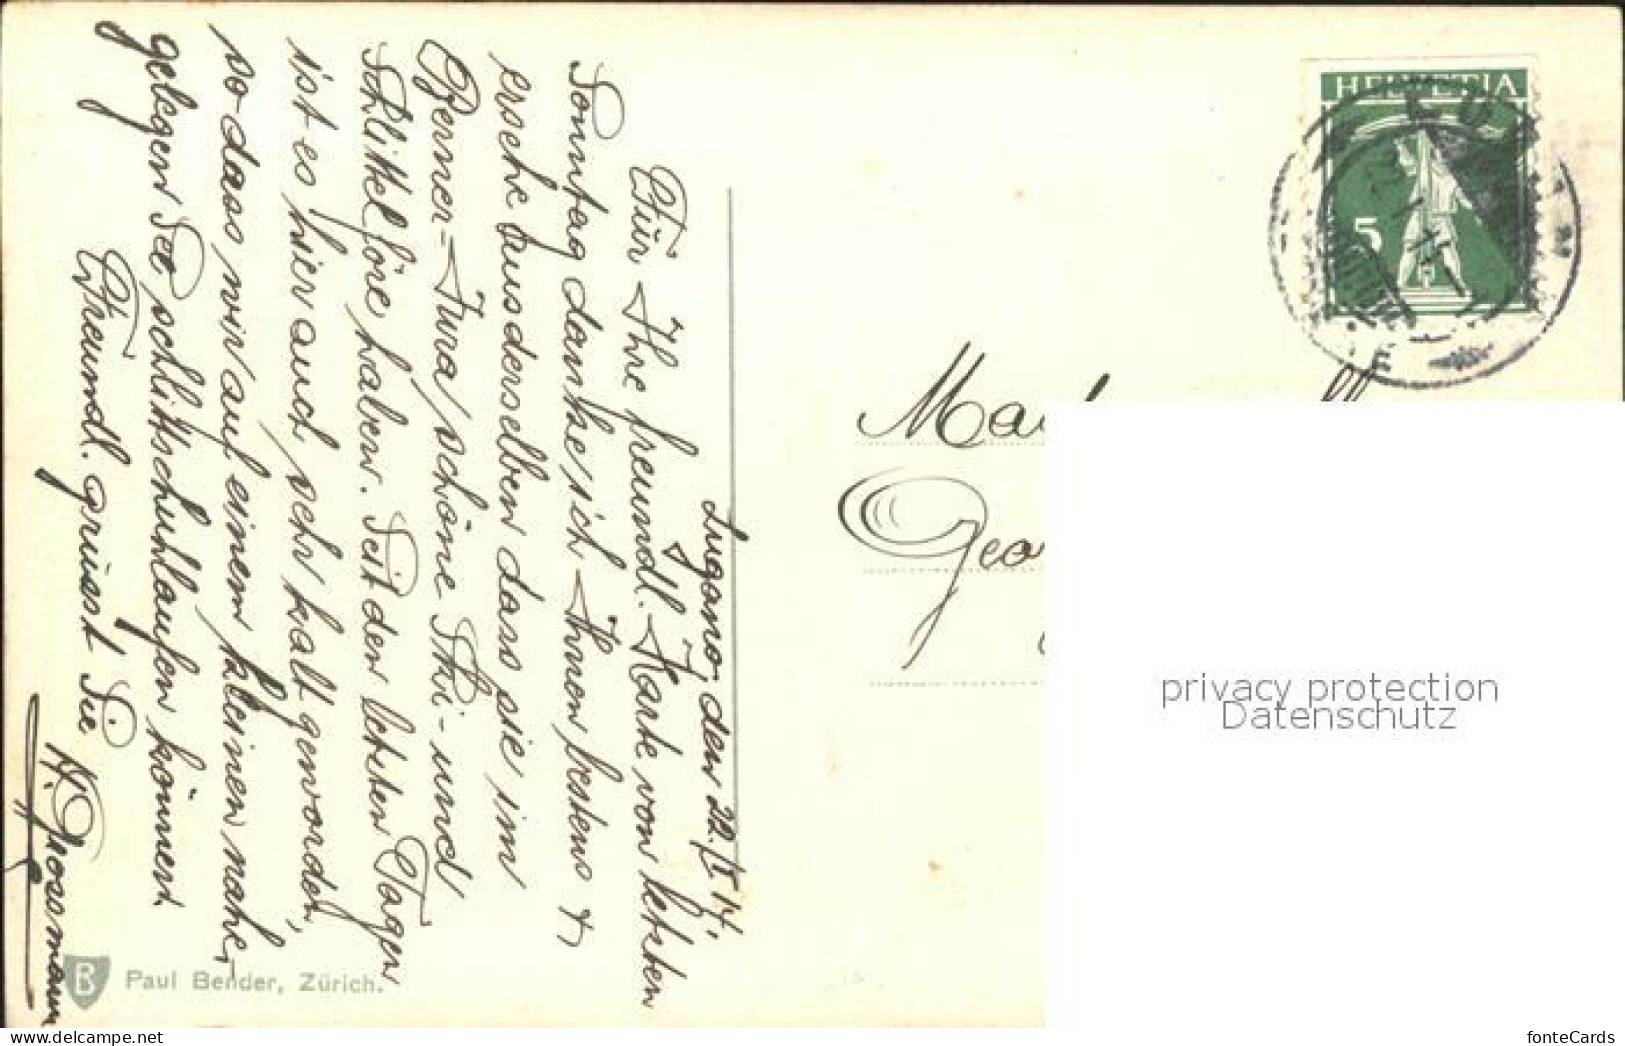 Lugano den 22. I 14.
Für Ihre freundl. Karte von letzten
Sonntag danke ich Ihnen bestens &
ersehe aus derselben dass sie im
Berner-Jura schöne Ski- und
Schlittelföre haben. Seit den letzten Tagen
ist es hier auch sehr kalt geworden,
so dass wir auf einem kleinen nahe-
gelegen See schlittschuhlaufen können.
Freundl. grüsst Sie
H. Grossmann
B Paul Bender, Zürich.
HELVETIA
5
privacy protection
Datenschutz
fonteCards
delcampe.net